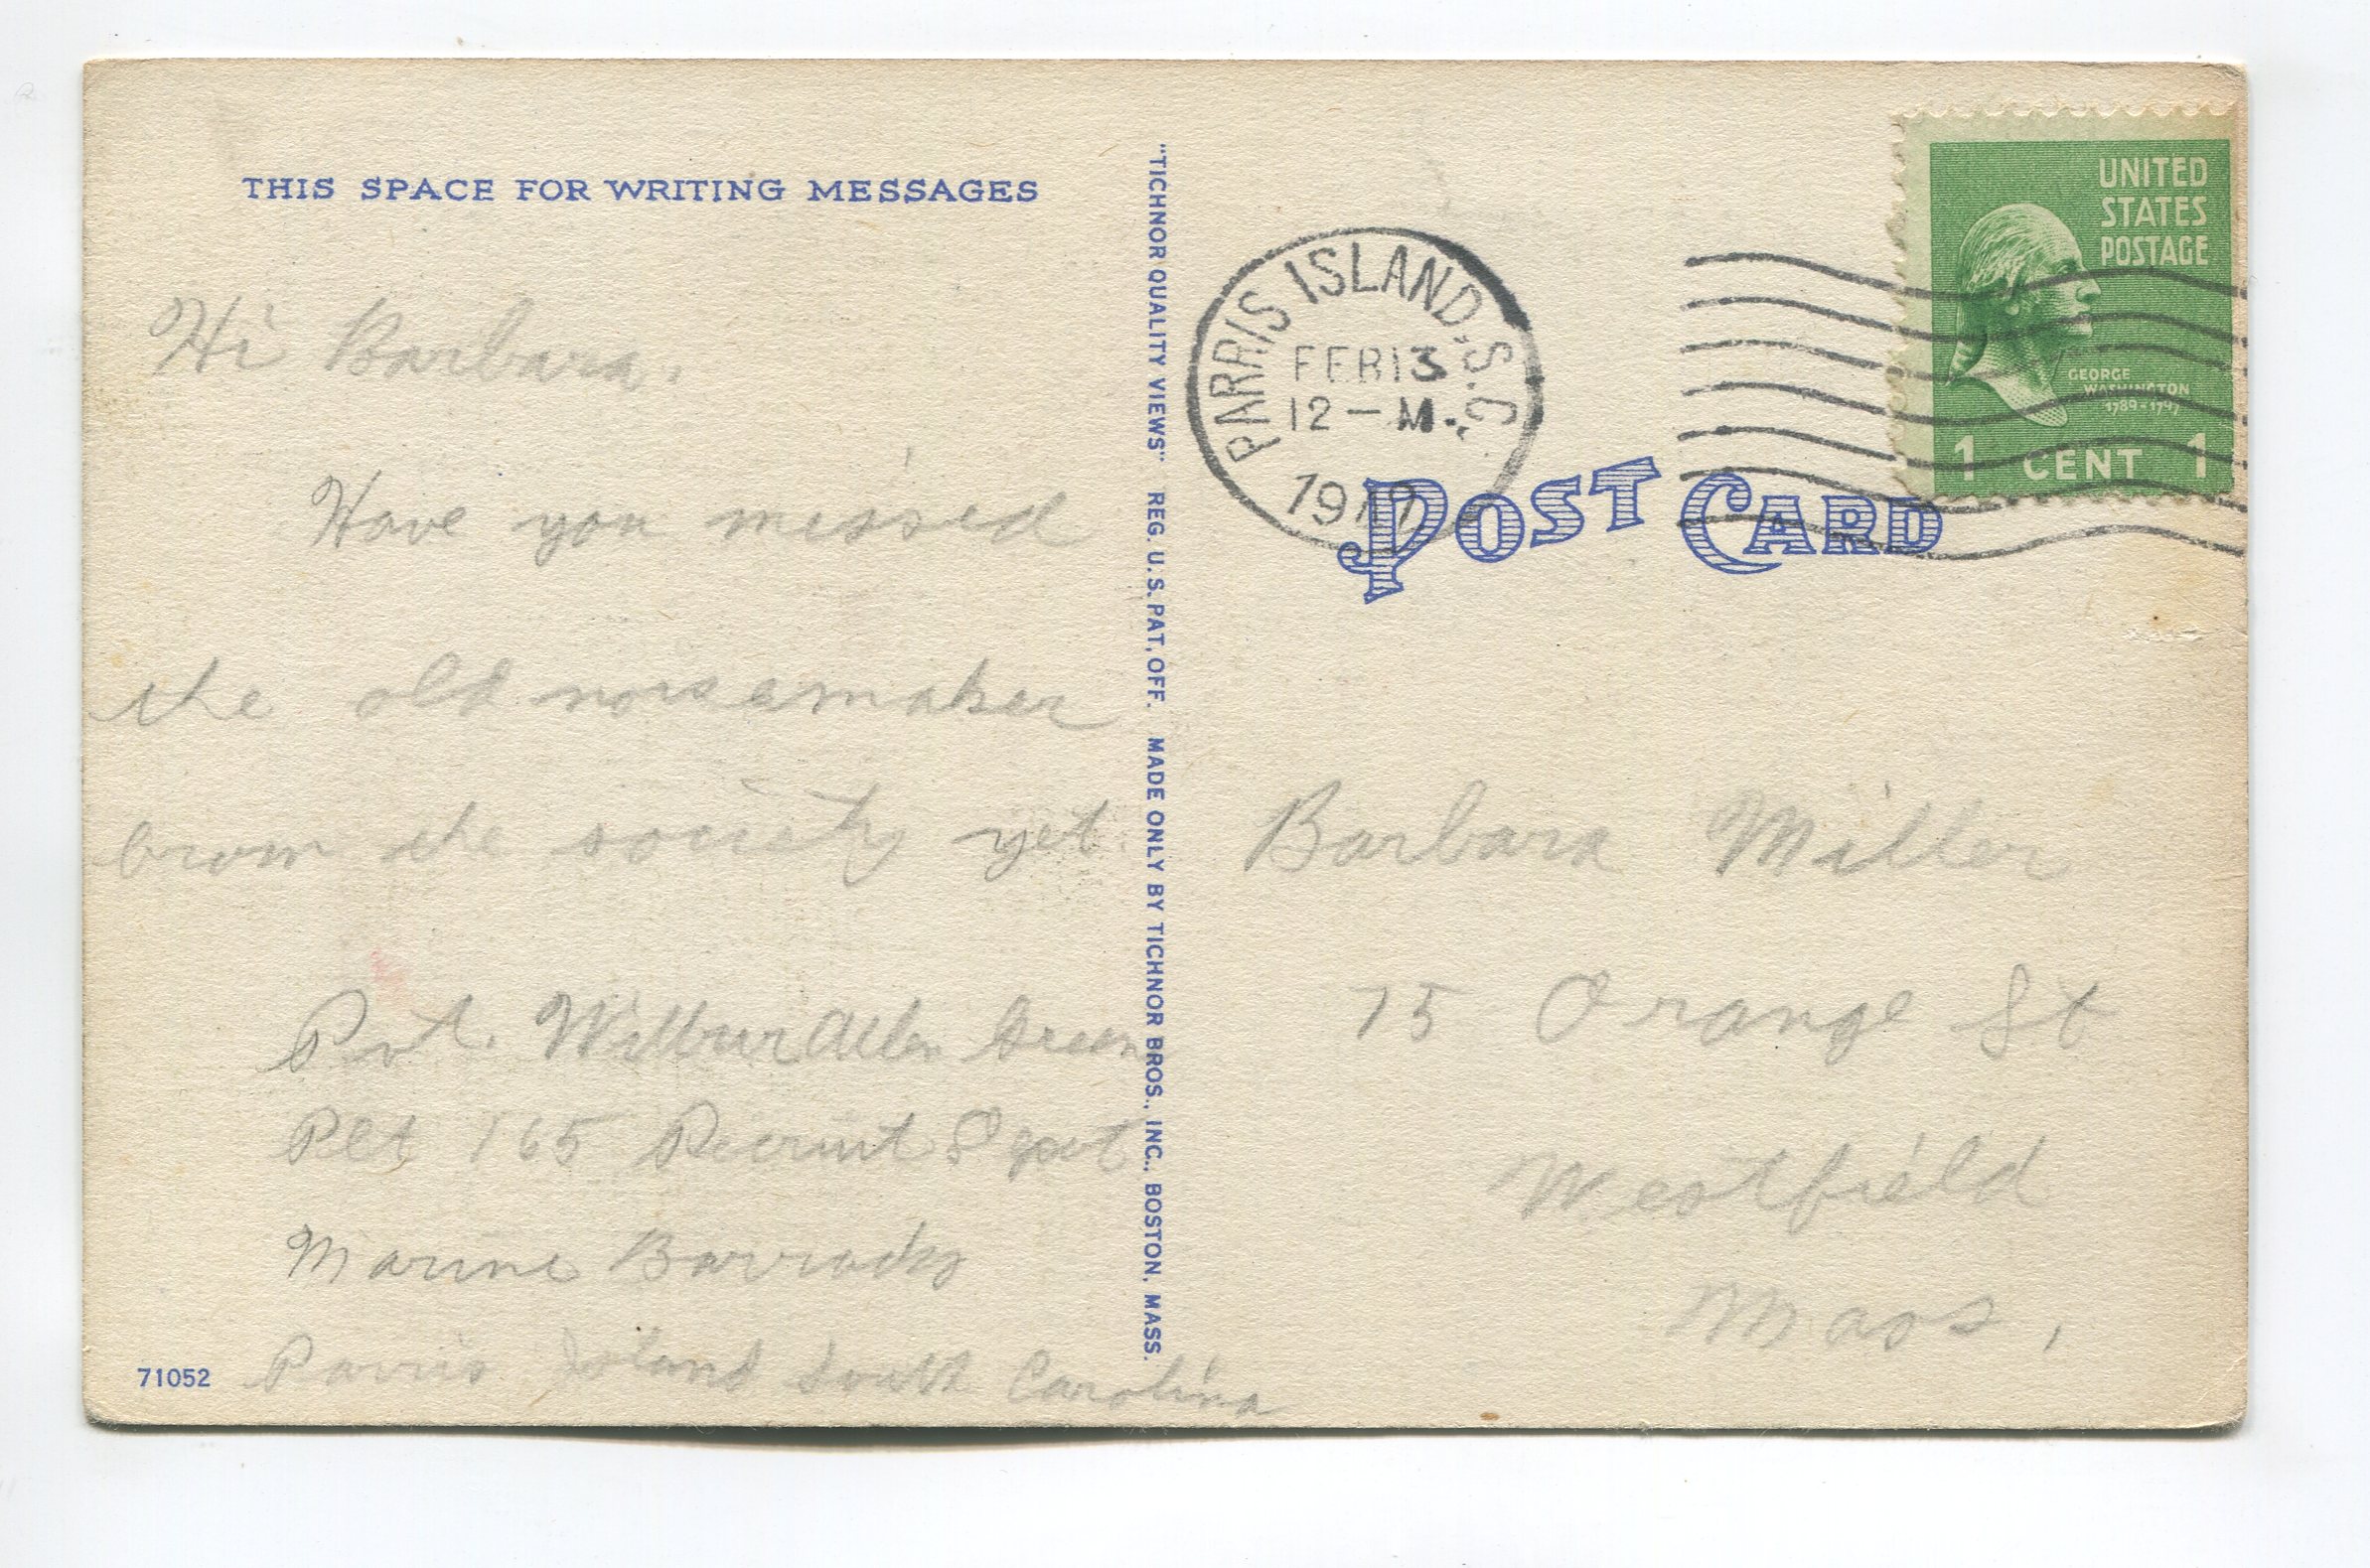 THIS SPACE FOR WRITING MESSAGES
Hi Barbara.
Have you missed
the old noisemaker
brom the society yet
Pvt. Wilbur Allen Green
Plt 165 Recruit Depot
Marine Barracks
Parris Island South Carolina
71052
"TICHNOR QUALITY VIEWS" REG. U.S. PAT. OFF. MADE ONLY BY TICHNOR BROS., INC., BOSTON, MASS.
PARRIS ISLAND, S.C.
FEB 13
12 – M.
UNITED
STATES
POSTAGE
GEORGE
WASHINGTON
1789-1797
1 CENT 1
POST CARD
Barbara Miller
75 Orange St
Westfield
Mass,